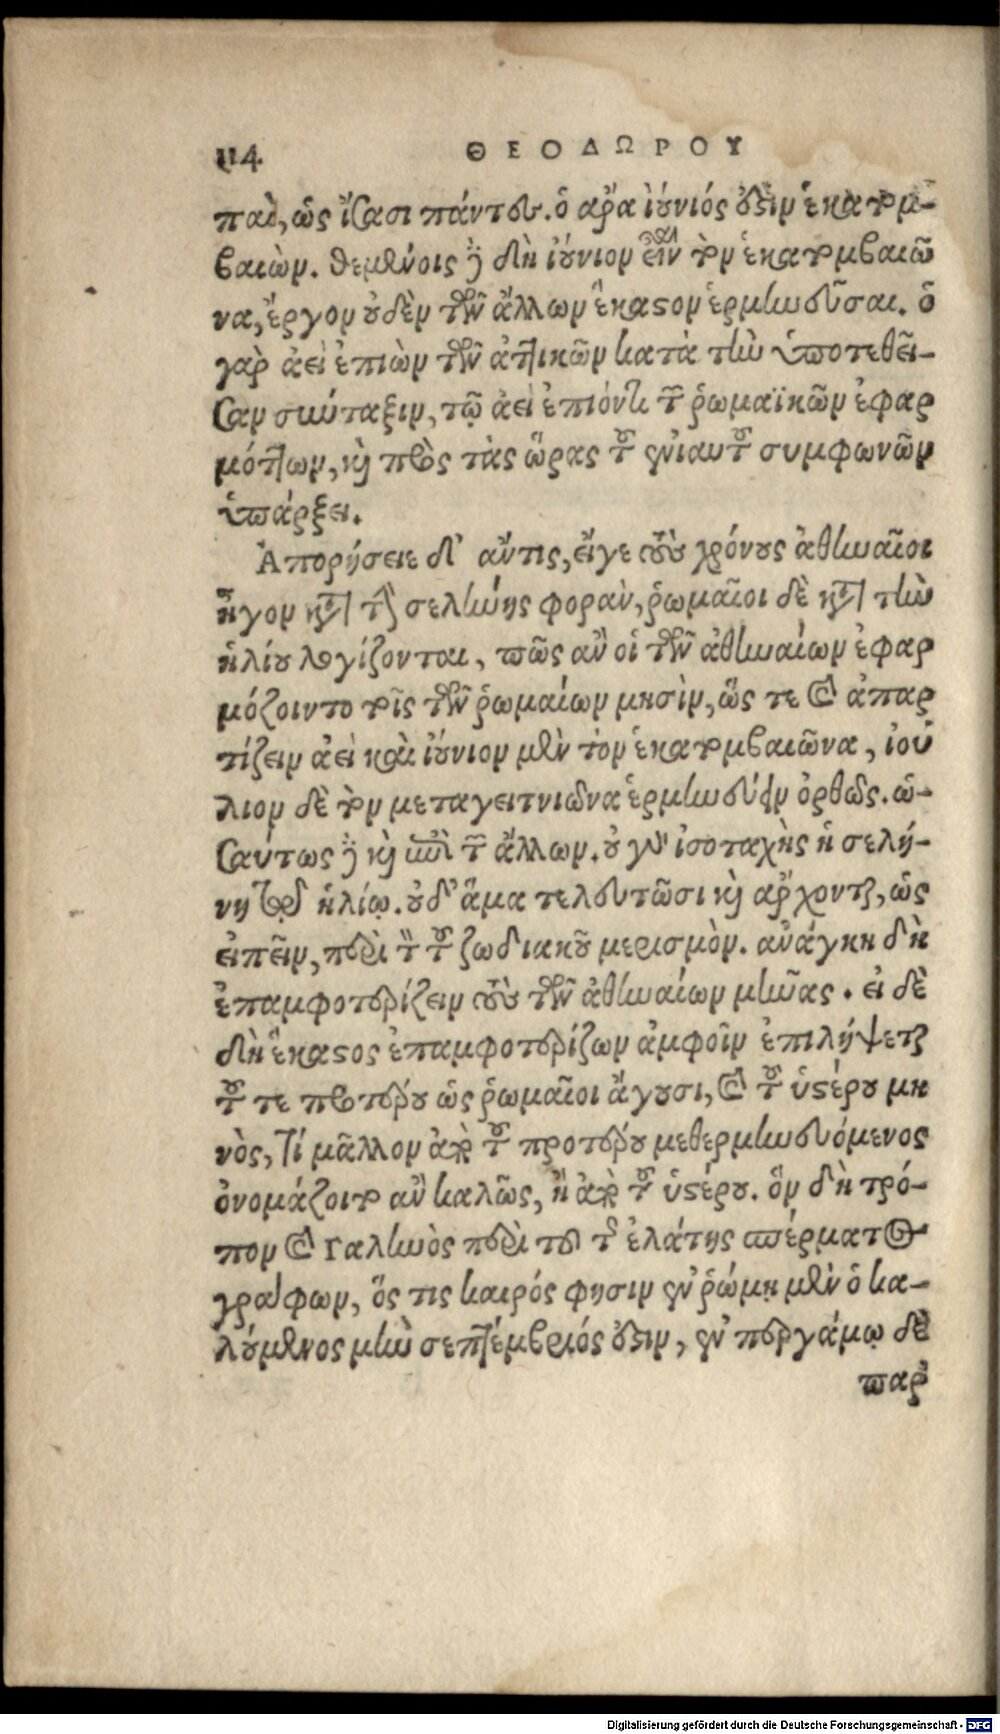 114 ΘΕΟΔΩΡΟΥ
παὶ, ὡς ἴσασι πάντες. ὁ ἄρα ἰούνιός ἐστιν ἑκατομ-
βαιών. θεμένοις δὲ δὴ ἰούνιον εἶναι τὸν ἑκατομβαιῶ
να, ἔργον οὐδὲν τῶν ἄλλων ἕκαστον ἑρμηνεῦσαι. ὁ
γὰρ ἀεὶ ἐπιὼν τῶν ἀττικῶν κατὰ τὴν ὑποτεθεῖ-
σαν σύνταξιν, τῷ ἀεὶ ἐπιόντι τῶν ῥωμαϊκῶν ἐφαρ
μόττων, καὶ πρὸς τὰς ὥρας τοῦ ἐνιαυτοῦ συμφωνῶν
ὑπάρξει.
Ἀπορήσειε δ' ἄν τις, εἴγε τοὺς χρόνους ἀθηναῖοι
ἦγον κατὰ τῆς σελήνης φορὰν, ῥωμαῖοι δὲ κατὰ τὴν
ἡλίου λογίζονται, πῶς ἂν οἱ τῶν ἀθηναίων ἐφαρ
μόζοιντο τοῖς τῶν ῥωμαίων μησὶν, ὥς τε καὶ ἀπαρ
τίζειν ἀεὶ καὶ ἰούνιον μὲν τὸν ἑκατομβαιῶνα, ἰού
λιον δὲ τὸν μεταγειτνιῶνα ἑρμηνεύειν ὀρθῶς. ὡ-
σαύτως δὲ καὶ ἐπὶ τῶν ἄλλων. οὐ γὰρ ἰσοταχὴς ἡ σελή-
νη τῷ ἡλίῳ. οὐδ' ἅμα τελευτῶσι καὶ ἄρχονται, ὡς
εἰπεῖν, περὶ τὸν τοῦ ζωδιακοῦ μερισμὸν. ἀνάγκη δὴ
ἐπαμφοτερίζειν τοὺς τῶν ἀθηναίων μῆνας. εἰ δὲ
δὴ ἕκαστος ἐπαμφοτερίζων ἀμφοῖν ἐπιλήψεται
τοῦ τε προτέρου ὡς ῥωμαῖοι ἄγουσι, καὶ τοῦ ὑστέρου μη
νὸς, τί μᾶλλον ἀπὸ τοῦ προτέρου μεθερμηνευόμενος
ὀνομάζοιτο ἂν καλῶς, ἢ ἀπὸ τοῦ ὑστέρου. ὃν δὴ τρό-
πον καὶ Γαληνὸς περὶ τοῦ τῆς ἐλάτης σπέρματος
γράφων, ὅς τις καιρός φησιν ἐν ῥώμῃ μὲν ὁ κα-
λούμενος μὴν σεπτέμβριός ἐστιν, ἐν περγάμῳ δὲ
παρ'
Digitalisierung gefördert durch die Deutsche Forschungsgemeinschaft - DFG